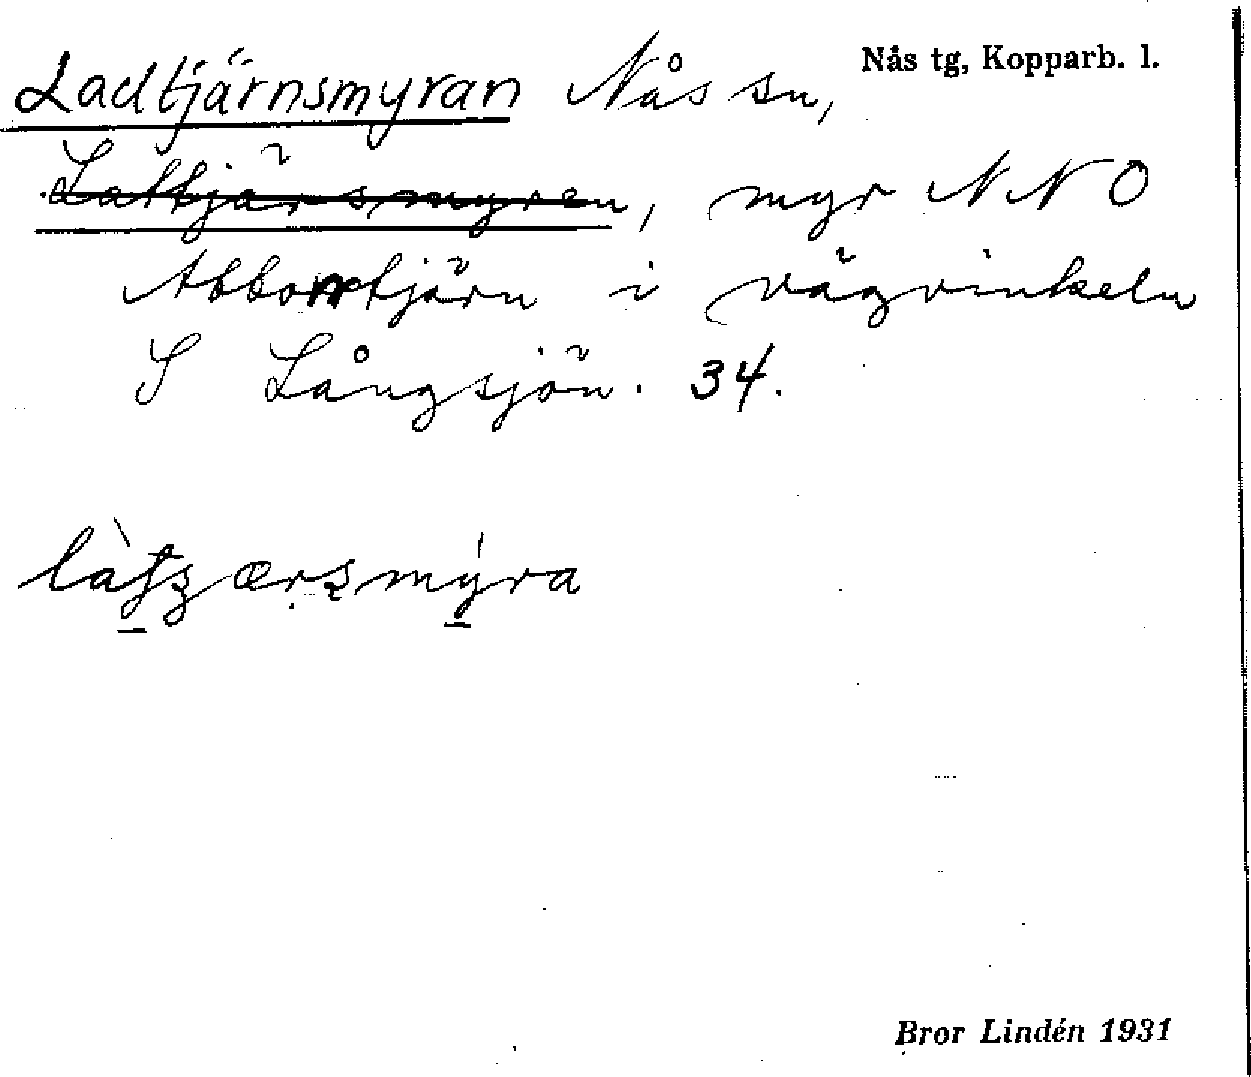 Ladtjärnsmyran Nås sn, Nås tg, Kopparb. l.
Lattjärsmyren, myr NNO
Abborrtjärn i vägvinkeln
S Långsjön. 34.
Bror Lindén 1931